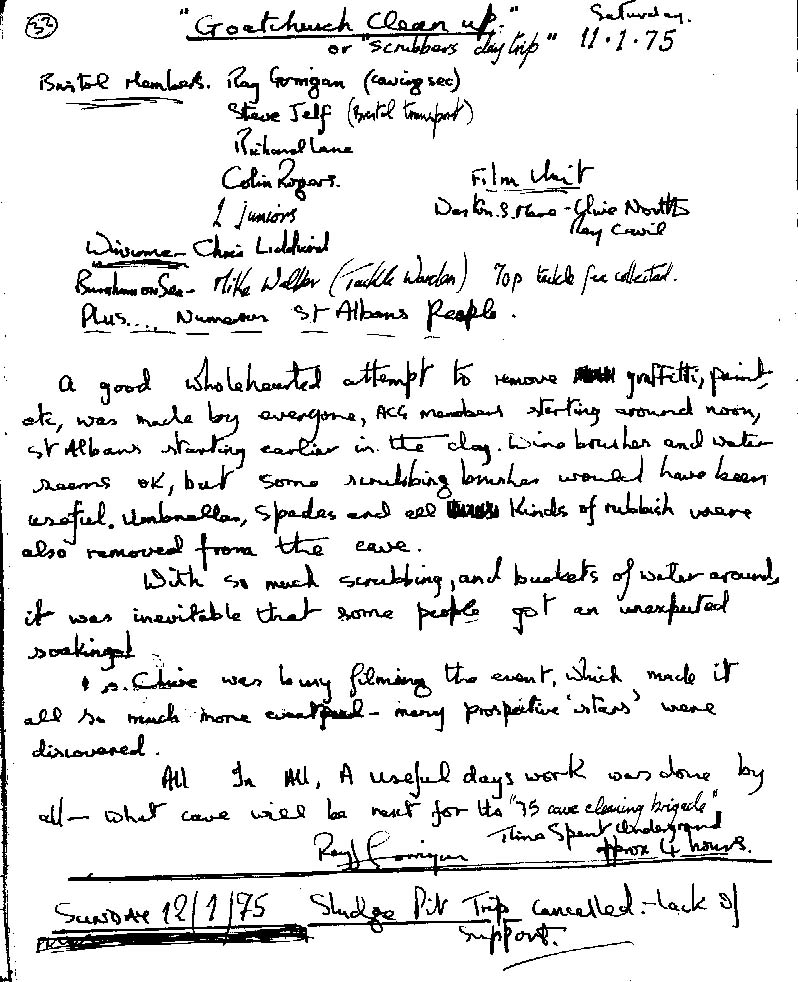 32
"Goatchurch Clean up." Saturday.
or "scrubbers day trip" 11.1.75
Bristol Members. Ray Corrigan (caving sec)
Steve Jelf (Bristol transport)
Richard Lane
Colin Rogers.
2 Juniors
Film Unit
Weston. S. Mare - Clive North
Ray
Winscome - Chris
Burnham on Sea - Mike Walker (Tackle Warden) 70p tackle fee collected.
Plus... Numerous St Albans People.
A good wholehearted attempt to remove graffitti, paint
etc, was made by everyone, ACG members starting around noon,
St Albans starting earlier in the day. Wire brushes and water
seems OK, but some scrubbing brushes would have been
useful. Umbrellas, Spades and all kinds of rubbish were
also removed from the cave.
With so much scrubbing, and buckets of water around,
it was inevitable that some people got an unexpected
soaking!
Clive was busy filming the event, which made it
all so much more - many prospective 'stars' were
discovered.
All In All, A useful days work was done by
all - what cave will be next for the "75 cave cleaning brigade"
Time Spent Underground
approx 4 hours.
Ray Corrigan
SUNDAY 12/1/75 Sludge Pit Trip cancelled. - lack of
support.